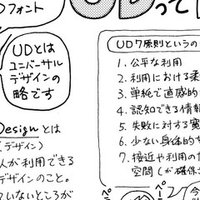 UDって
フォント
UDとは
ユニバーサル
デザインの
略です
Designとは
(デザイン)
人が利用できる
デザインのこと。
ていないところが
UD7原則というの
1. 公平な利用
2. 利用における柔
3. 単純で直感的
4. 認知できる情報
5. 失敗に対する寛
6. 少ない身体的
7. 接近や利用の
空間(が確保